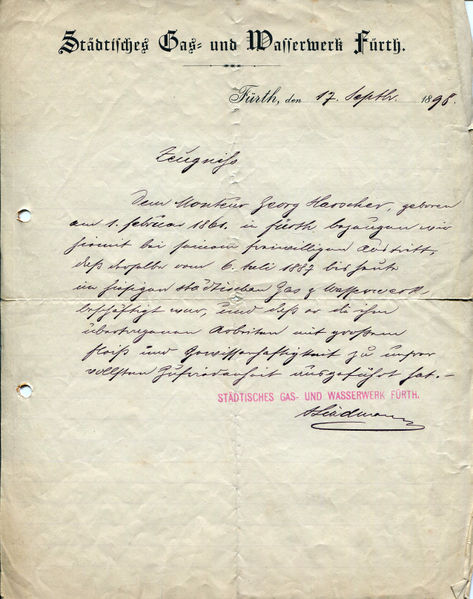 Städtisches Gas- und Wasserwerk Fürth.
Fürth, den 17. Septbr. 1898.
Zeugniss
Dem Monteur Georg Harscher, geboren
am 1. Februar 1861. in Fürth bezeugen wir
hiemit bei seinem freiwilligen Austritt,
daß derselbe vom 6. Juli 1887 bis heute
im hiesigen städtischen Gas & Wasserwerk
beschäftigt war, und daß er die ihm
übertragenen Arbeiten mit großem
Fleiß und Gewissenhaftigkeit zu unserer
vollsten Zufriedenheit ausgeführt hat.-
STÄDTISCHES GAS- UND WASSERWERK FÜRTH.